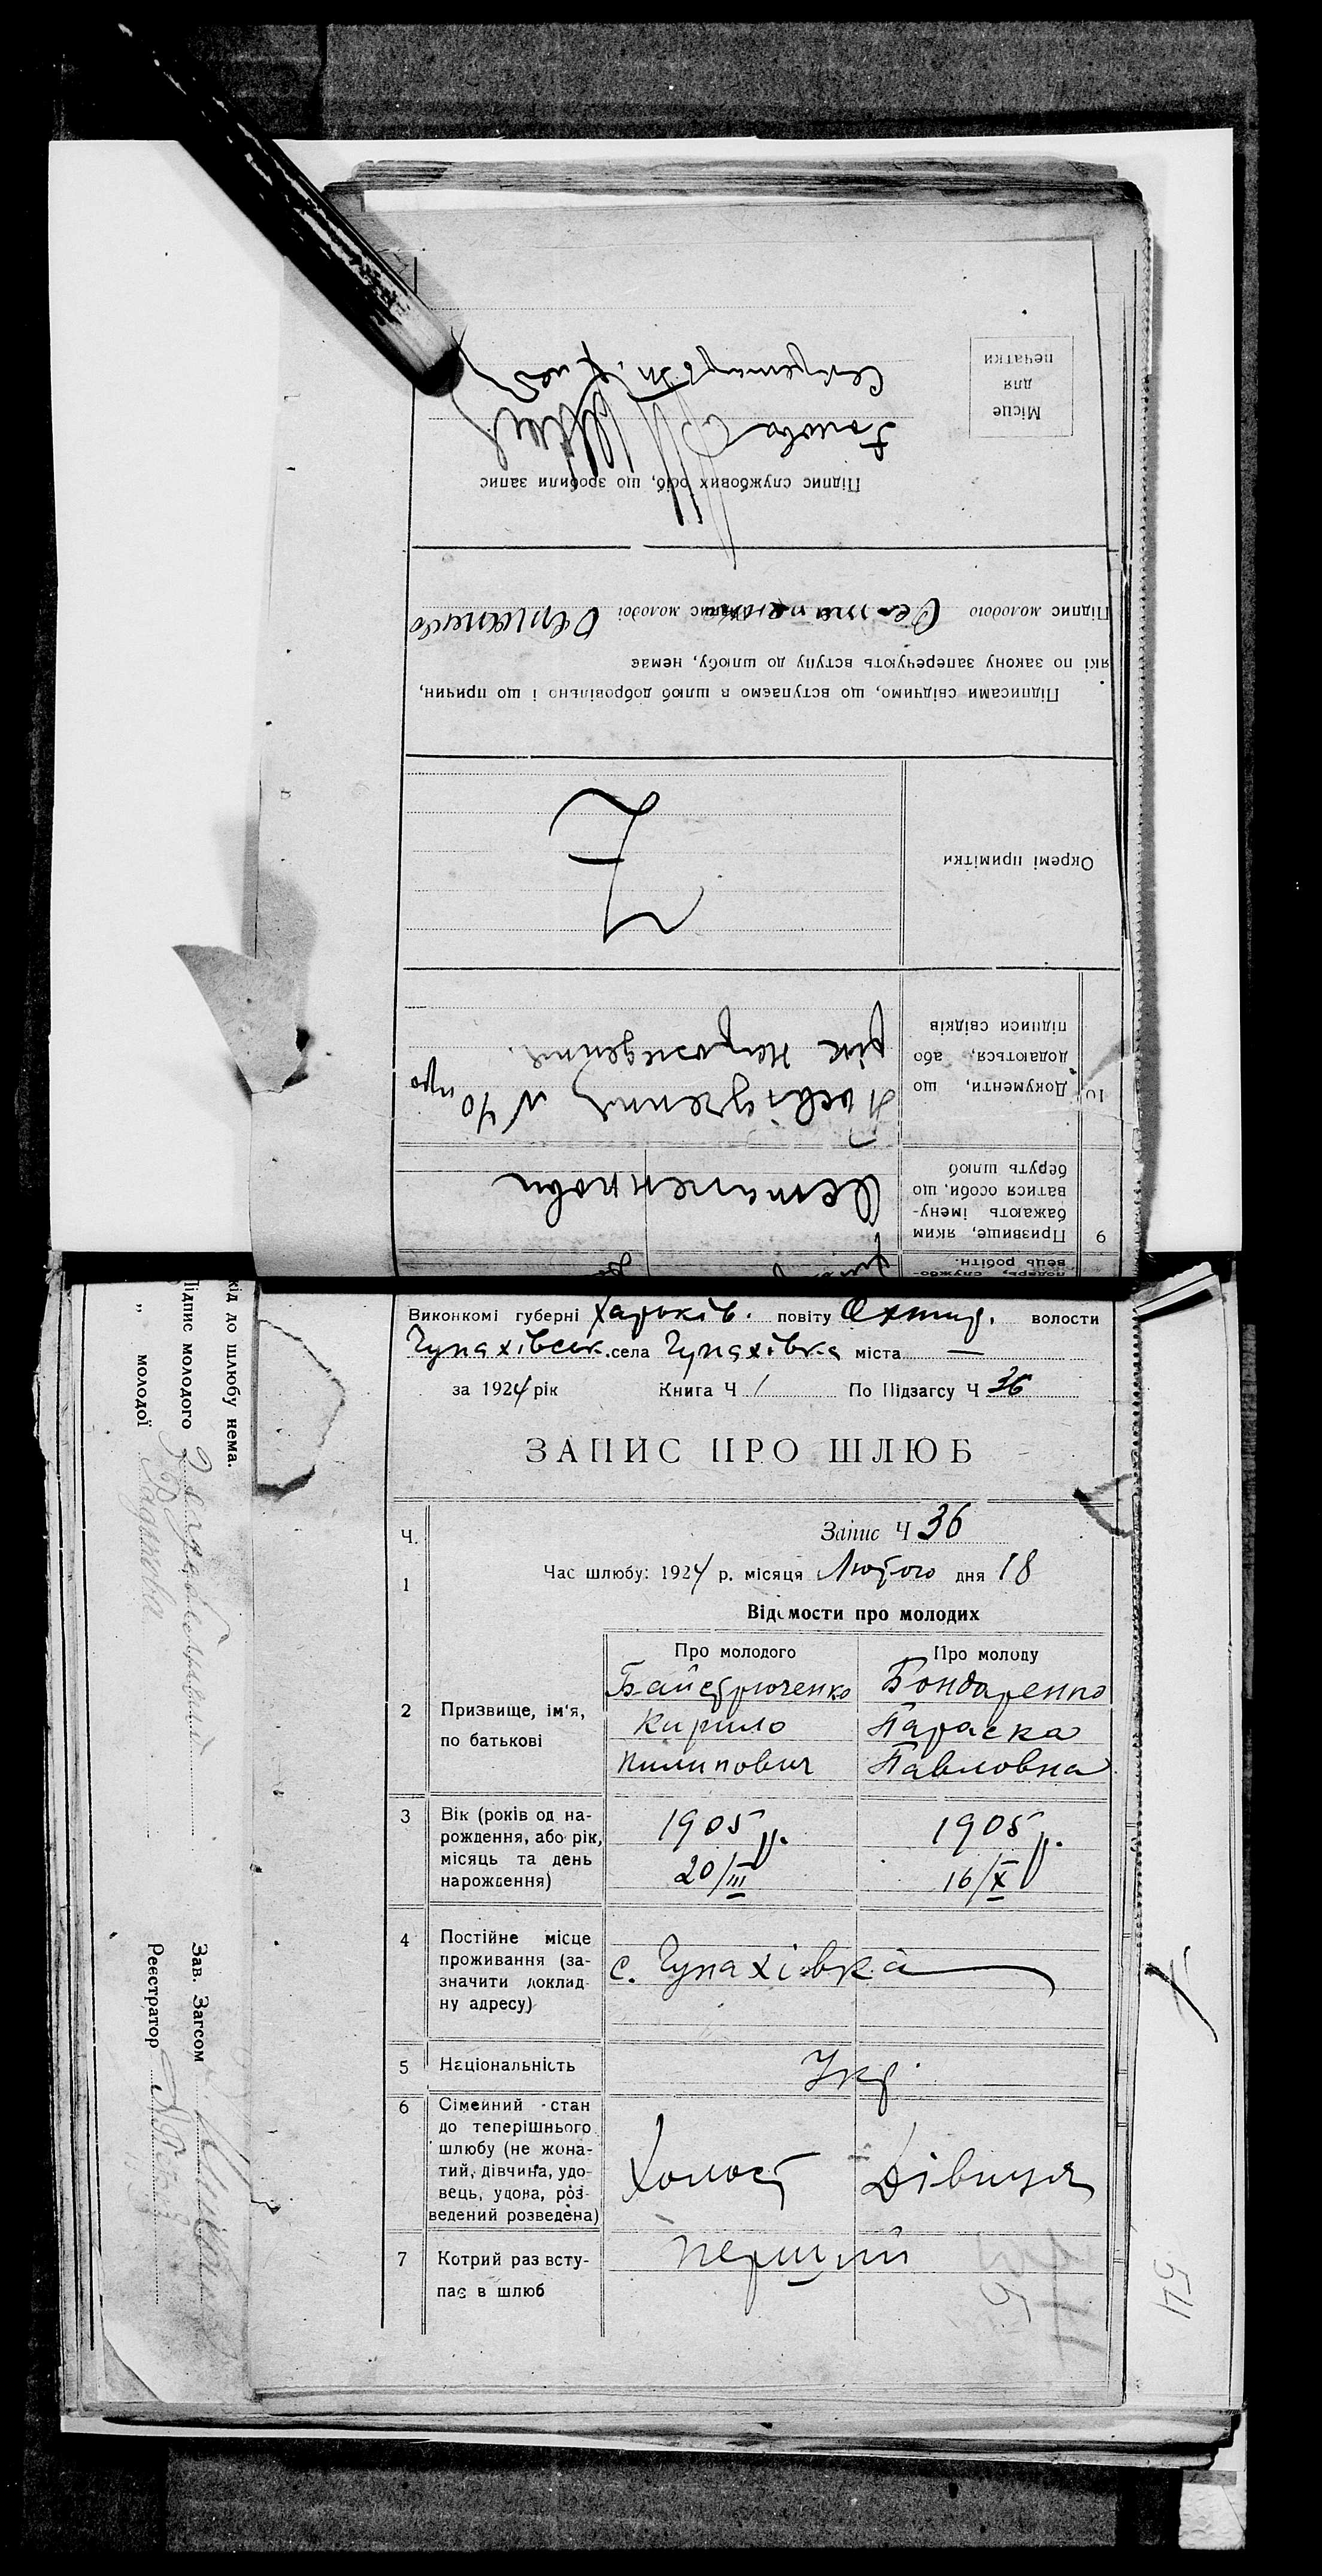 Місце
для
печатки
Секретарь
Голова
Підпис службових осіб, що зробили запис
Підпис молодого Остапенко Підпис молодої
які по закону заперечують вступу до шлюбу, немає
Підписами свідчимо, що вступаємо в шлюб добровільно і що причин,
Окремі примітки
10 Документи, що
додаються, або
підписи свідків
Посвідчення N 40 про
рік нарождення.
9 Призвище, яким
бажають імену-
ватися особи, що
беруть шлюб
Остапенкови
Виконкомі губерні Харьків. повіту Охтир. волости
Чупахівськ. села Чупахівка міста —
за 1924 рік Книга Ч 1 По Підзагсу Ч 36
ЗАПИС ПРО ШЛЮБ
Ч. Запис Ч 36
1 Час шлюбу: 1924 р. місяця Лютого дня 18
Відомости про молодих
Про молодого Про молоду
2 Призвище, ім'я,
по батькові
Байстрюченко Бондаренко
Кирило Параска
Пилипович Павловна
3 Вік (років од на-
рождення, або рік,
місяць та день
нарождення)
1905 р. 1905 р.
20/III 16/X
4 Постійне місце
проживання (за-
значити доклад-
ну адресу)
с. Чупахівка
5 Національність Укр.
6 Сімейний стан
до теперішнього
шлюбу (не жона-
тий, дівчина, удо-
вець, удова, роз-
ведений розведена)
Холост Дівиця
7 Котрий раз всту-
пає в шлюб
перший
кід до шлюбу нема.
Підпис молодого
„ молодої
Зав. Загсом
Реєстратор
54